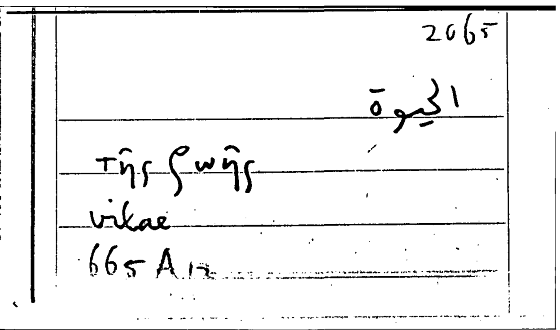 2065
الحيوة
τῆς ζωῆς
vitae
665 A 12